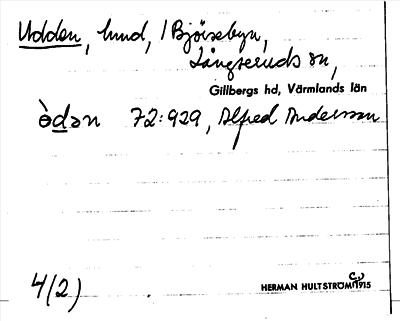 Udden, lund, i Björsebyn,
Långseruds sn,
Gillbergs hd, Värmlands län
ò̱dən 72:929, Alfred Andersson
4(2)
HERMAN HULTSTRÖM 1915